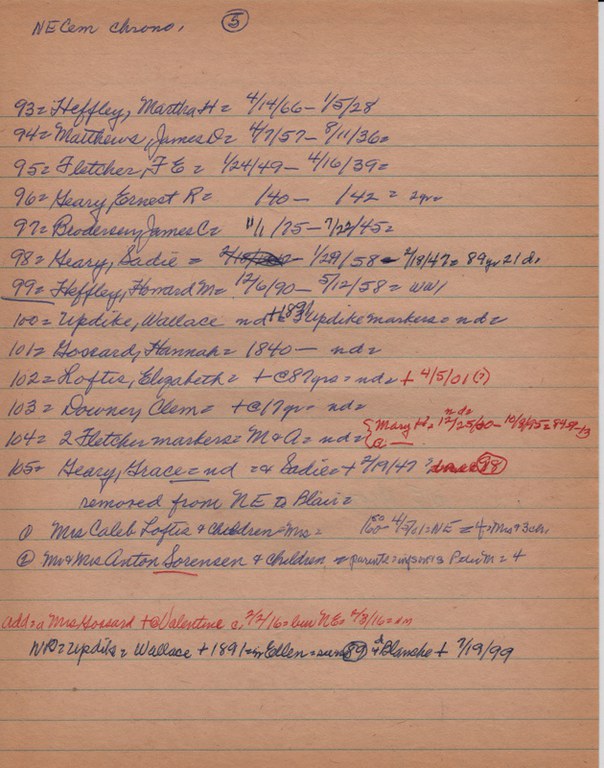 NE Cem chrono. 5
93= Heffley, Martha H= 4/14/66 - 1/5/28
94= Matthews, James D= 4/7/57 - 8/11/36=
95= Fletcher, F E = 1/24/49 - 4/16/39=
96= Geary, Ernest R= /40 - /42 = 2yrs
97= Brodersen, James C= 11/1/75 - 7/22/45=
98= Geary, Sadie = 1/29/58 - 2/19/47= 89yr 21 ds
99= Heffley, Howard M= 12/6/90 - 5/12/58 = WWI
100= Updike, Wallace nd +1891 3 Updike markers= nd=
101= Gossard, Hannah= 1840 - nd=
102= Loftis, Elizabeth= +c87yrs= nd= + 4/5/01(?)
103= Downey, Clem= +c17yr= nd=
104= 2 Fletcher markers= M & A= nd= { Mary H= nd= 12/25/60 - 10/8/45= 84
105= Geary, Grace= nd =& Sadie= + 2/19/47 98
removed from NE to Blair=
① Mrs Caleb Loftis & children= Mrs= 4/5/01= NE = 4= Mrs & 3 chn
② Mr & Mrs Anton Sorensen & children = parents= Peter M = 4
add= a Mrs Gossard + @ Valentine c. 2/2/16= bur NE= 2/8/16=
ND= Updike= Wallace + 1891= Edlen= 89 & Blanche + 7/19/99